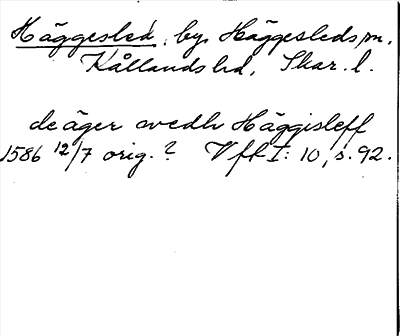 Häggesled, by, Häggesleds sn,
Kållands hd, Skar. l.
de äger wedh Häggisleff
1586 12/7 orig. ? Vfl I: 10, s. 92.